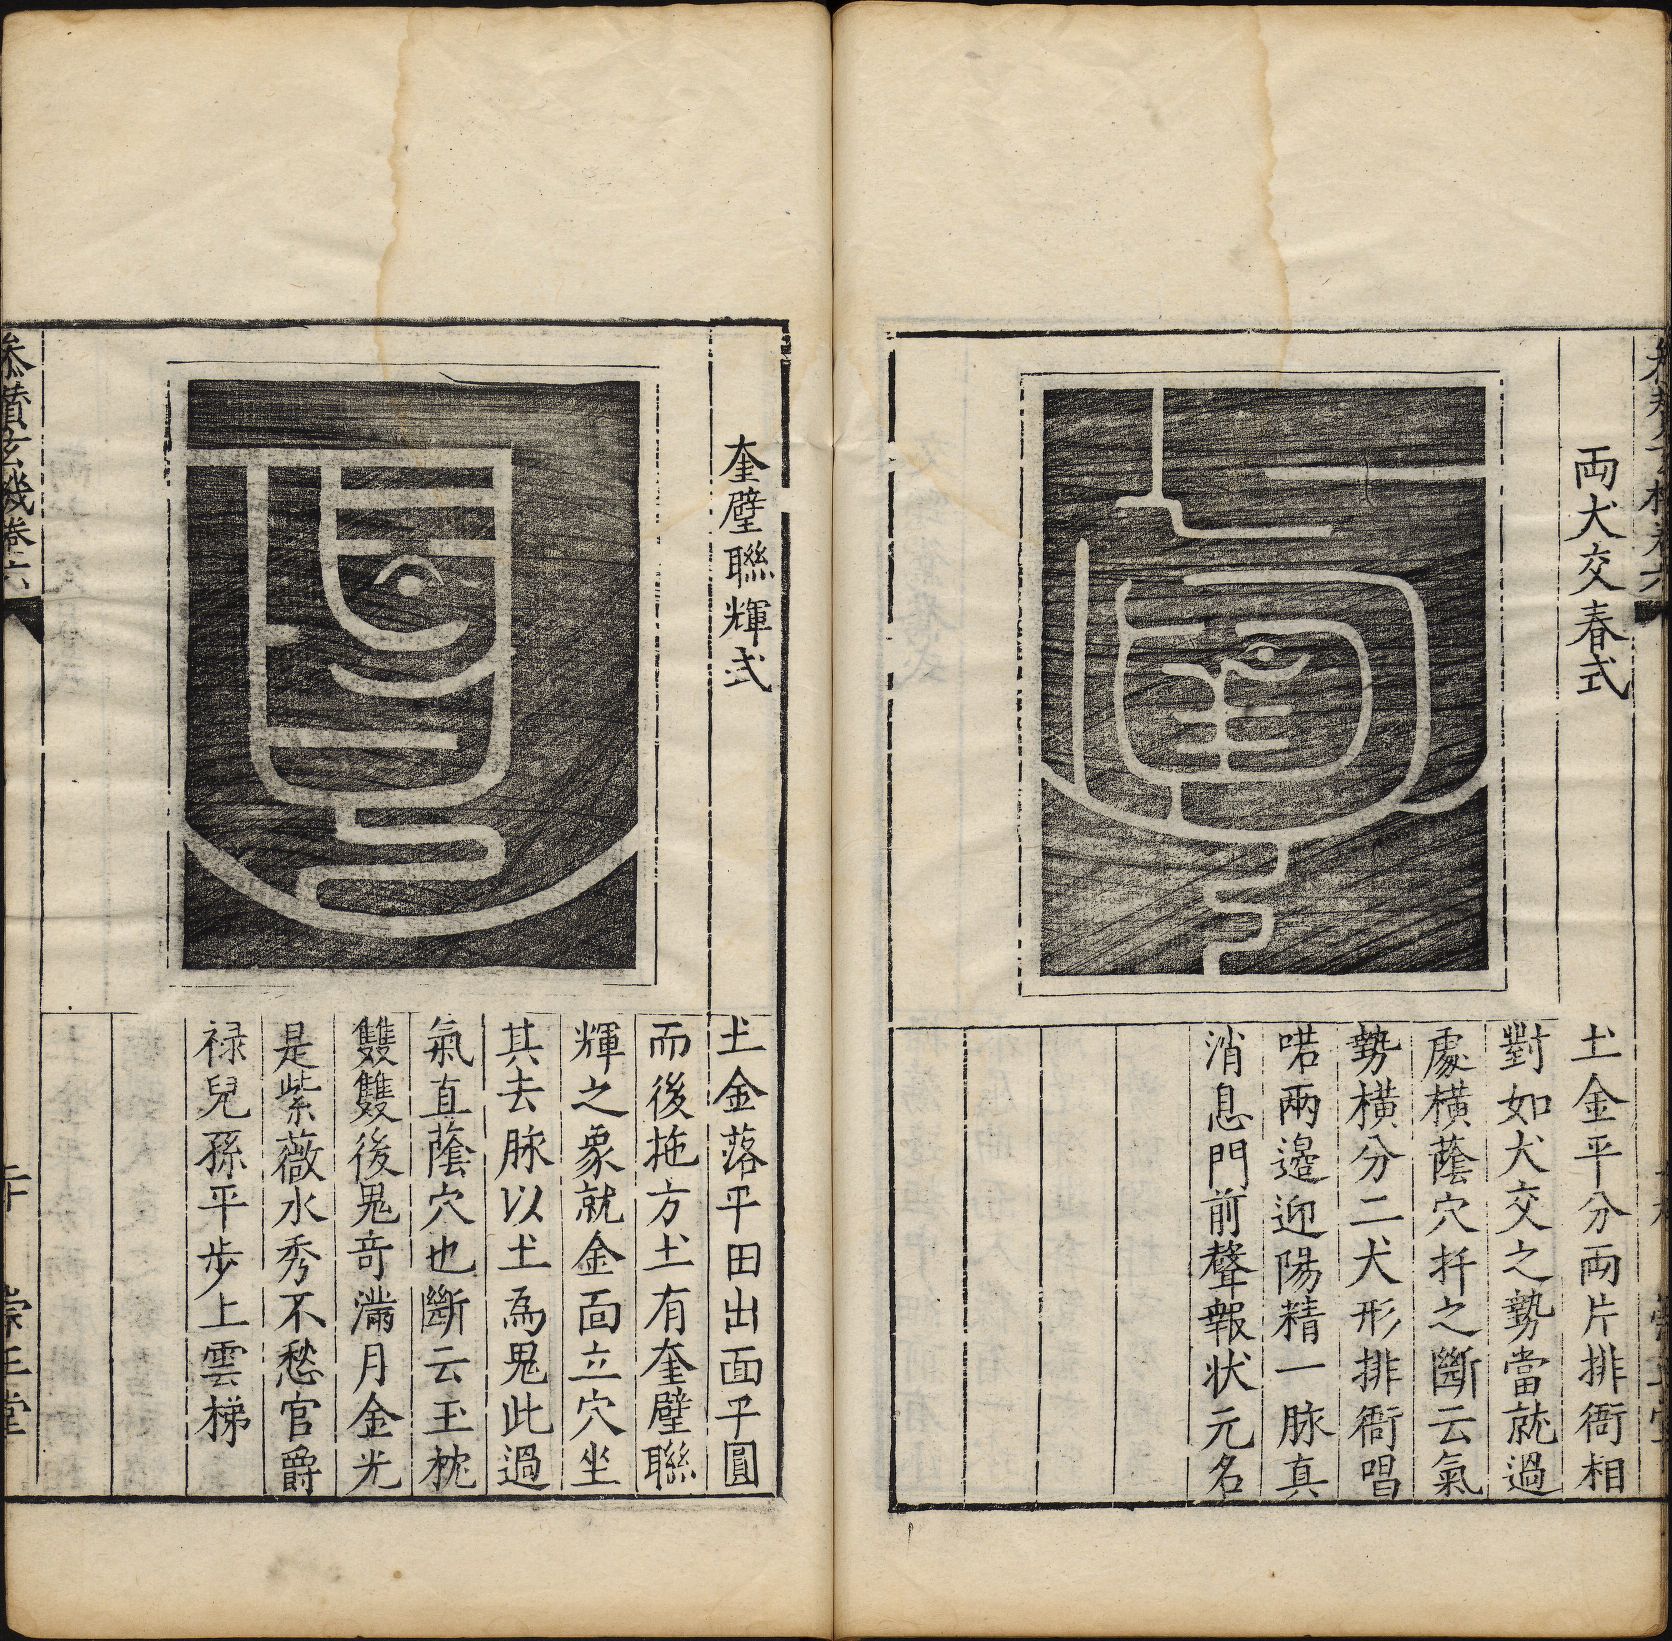 両犬交春式
土金平分両片排衙相
對如犬交之勢當就過
處橫蔭穴扦之斷云氣
勢橫分二犬形排衙唱
喏兩邊迎陽精一脉真
消息門前聲報状元名
奎璧聯輝式
土金落平田出面平圓
而後拖方土有奎璧聯
輝之象就金面立穴坐
其去脉以土為鬼此過
氣直蔭穴也斷云玉枕
雙雙後鬼奇滿月金光
是紫薇水秀不愁官爵
禄兒孫平步上雲梯
玄機卷六